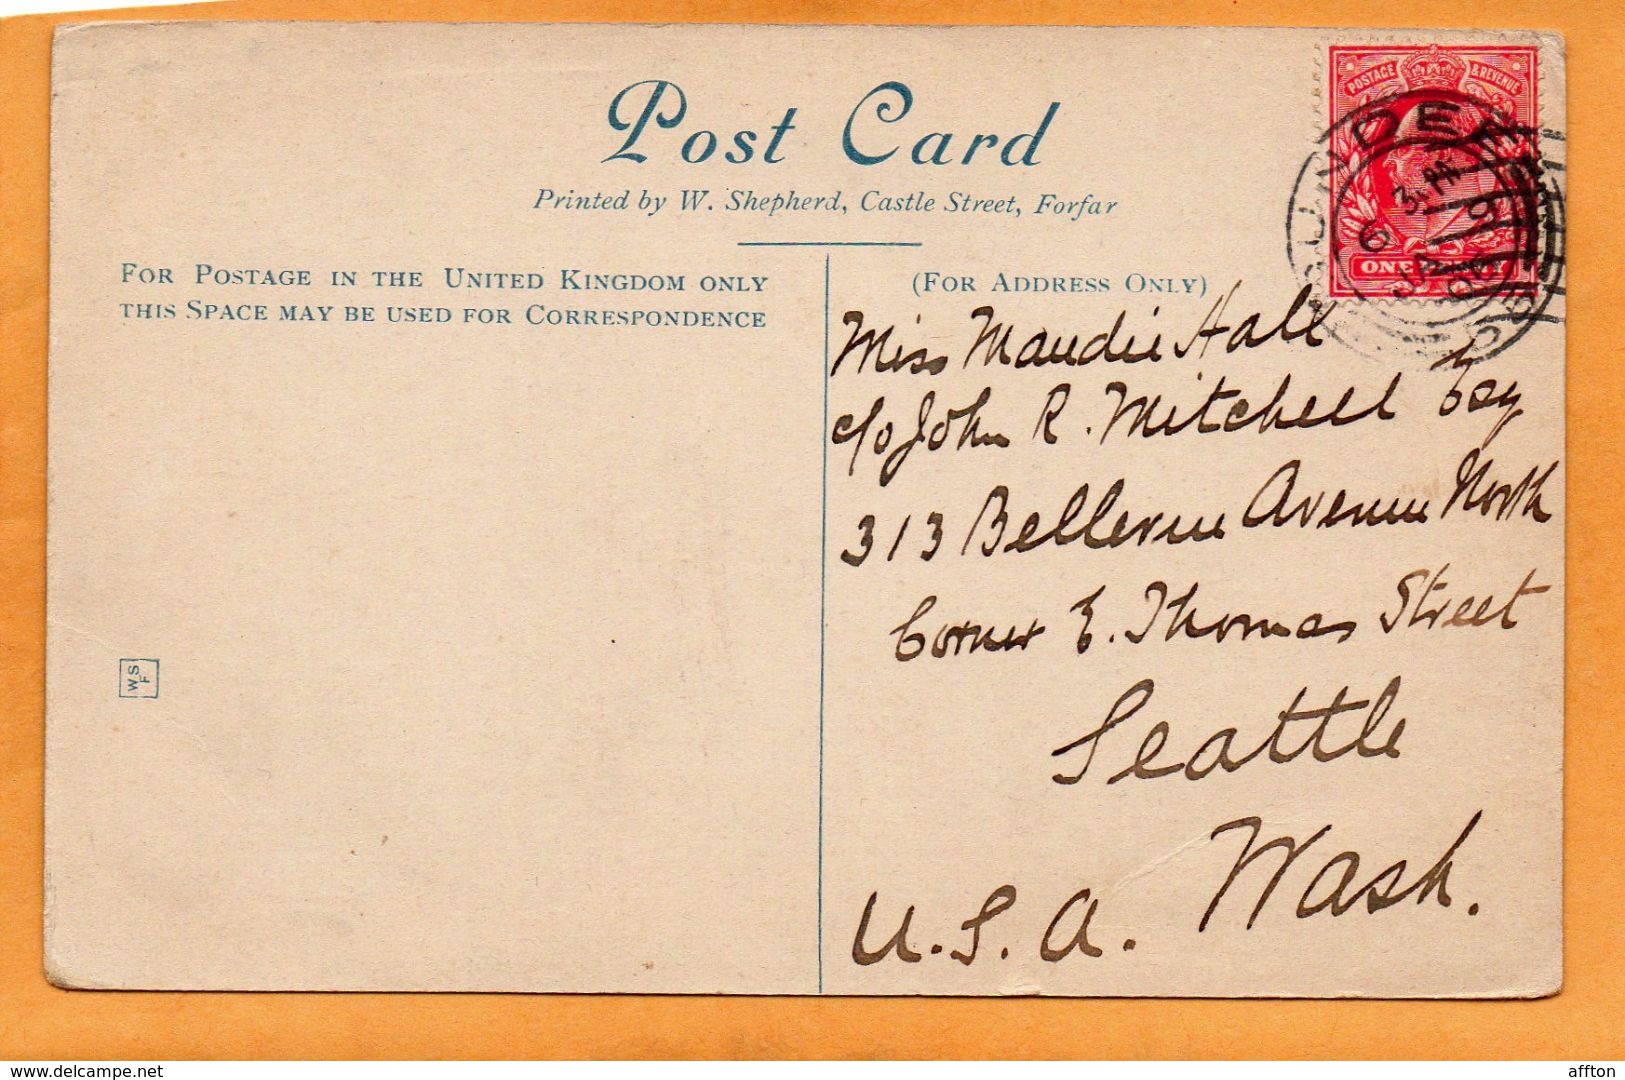 Post Card
Printed by W. Shepherd, Castle Street, Forfar
FOR POSTAGE IN THE UNITED KINGDOM ONLY
THIS SPACE MAY BE USED FOR CORRESPONDENCE
(FOR ADDRESS ONLY)
POSTAGE & REVENUE
ONE PENNY
DUNDEE
Miss Maudie Hall
c/o John R. Mitchell Esq
313 Bellevue Avenue North
Corner E. Thomas Street
Seattle
Wash.
U.S.A.
WS
F
delcampe.net
affton